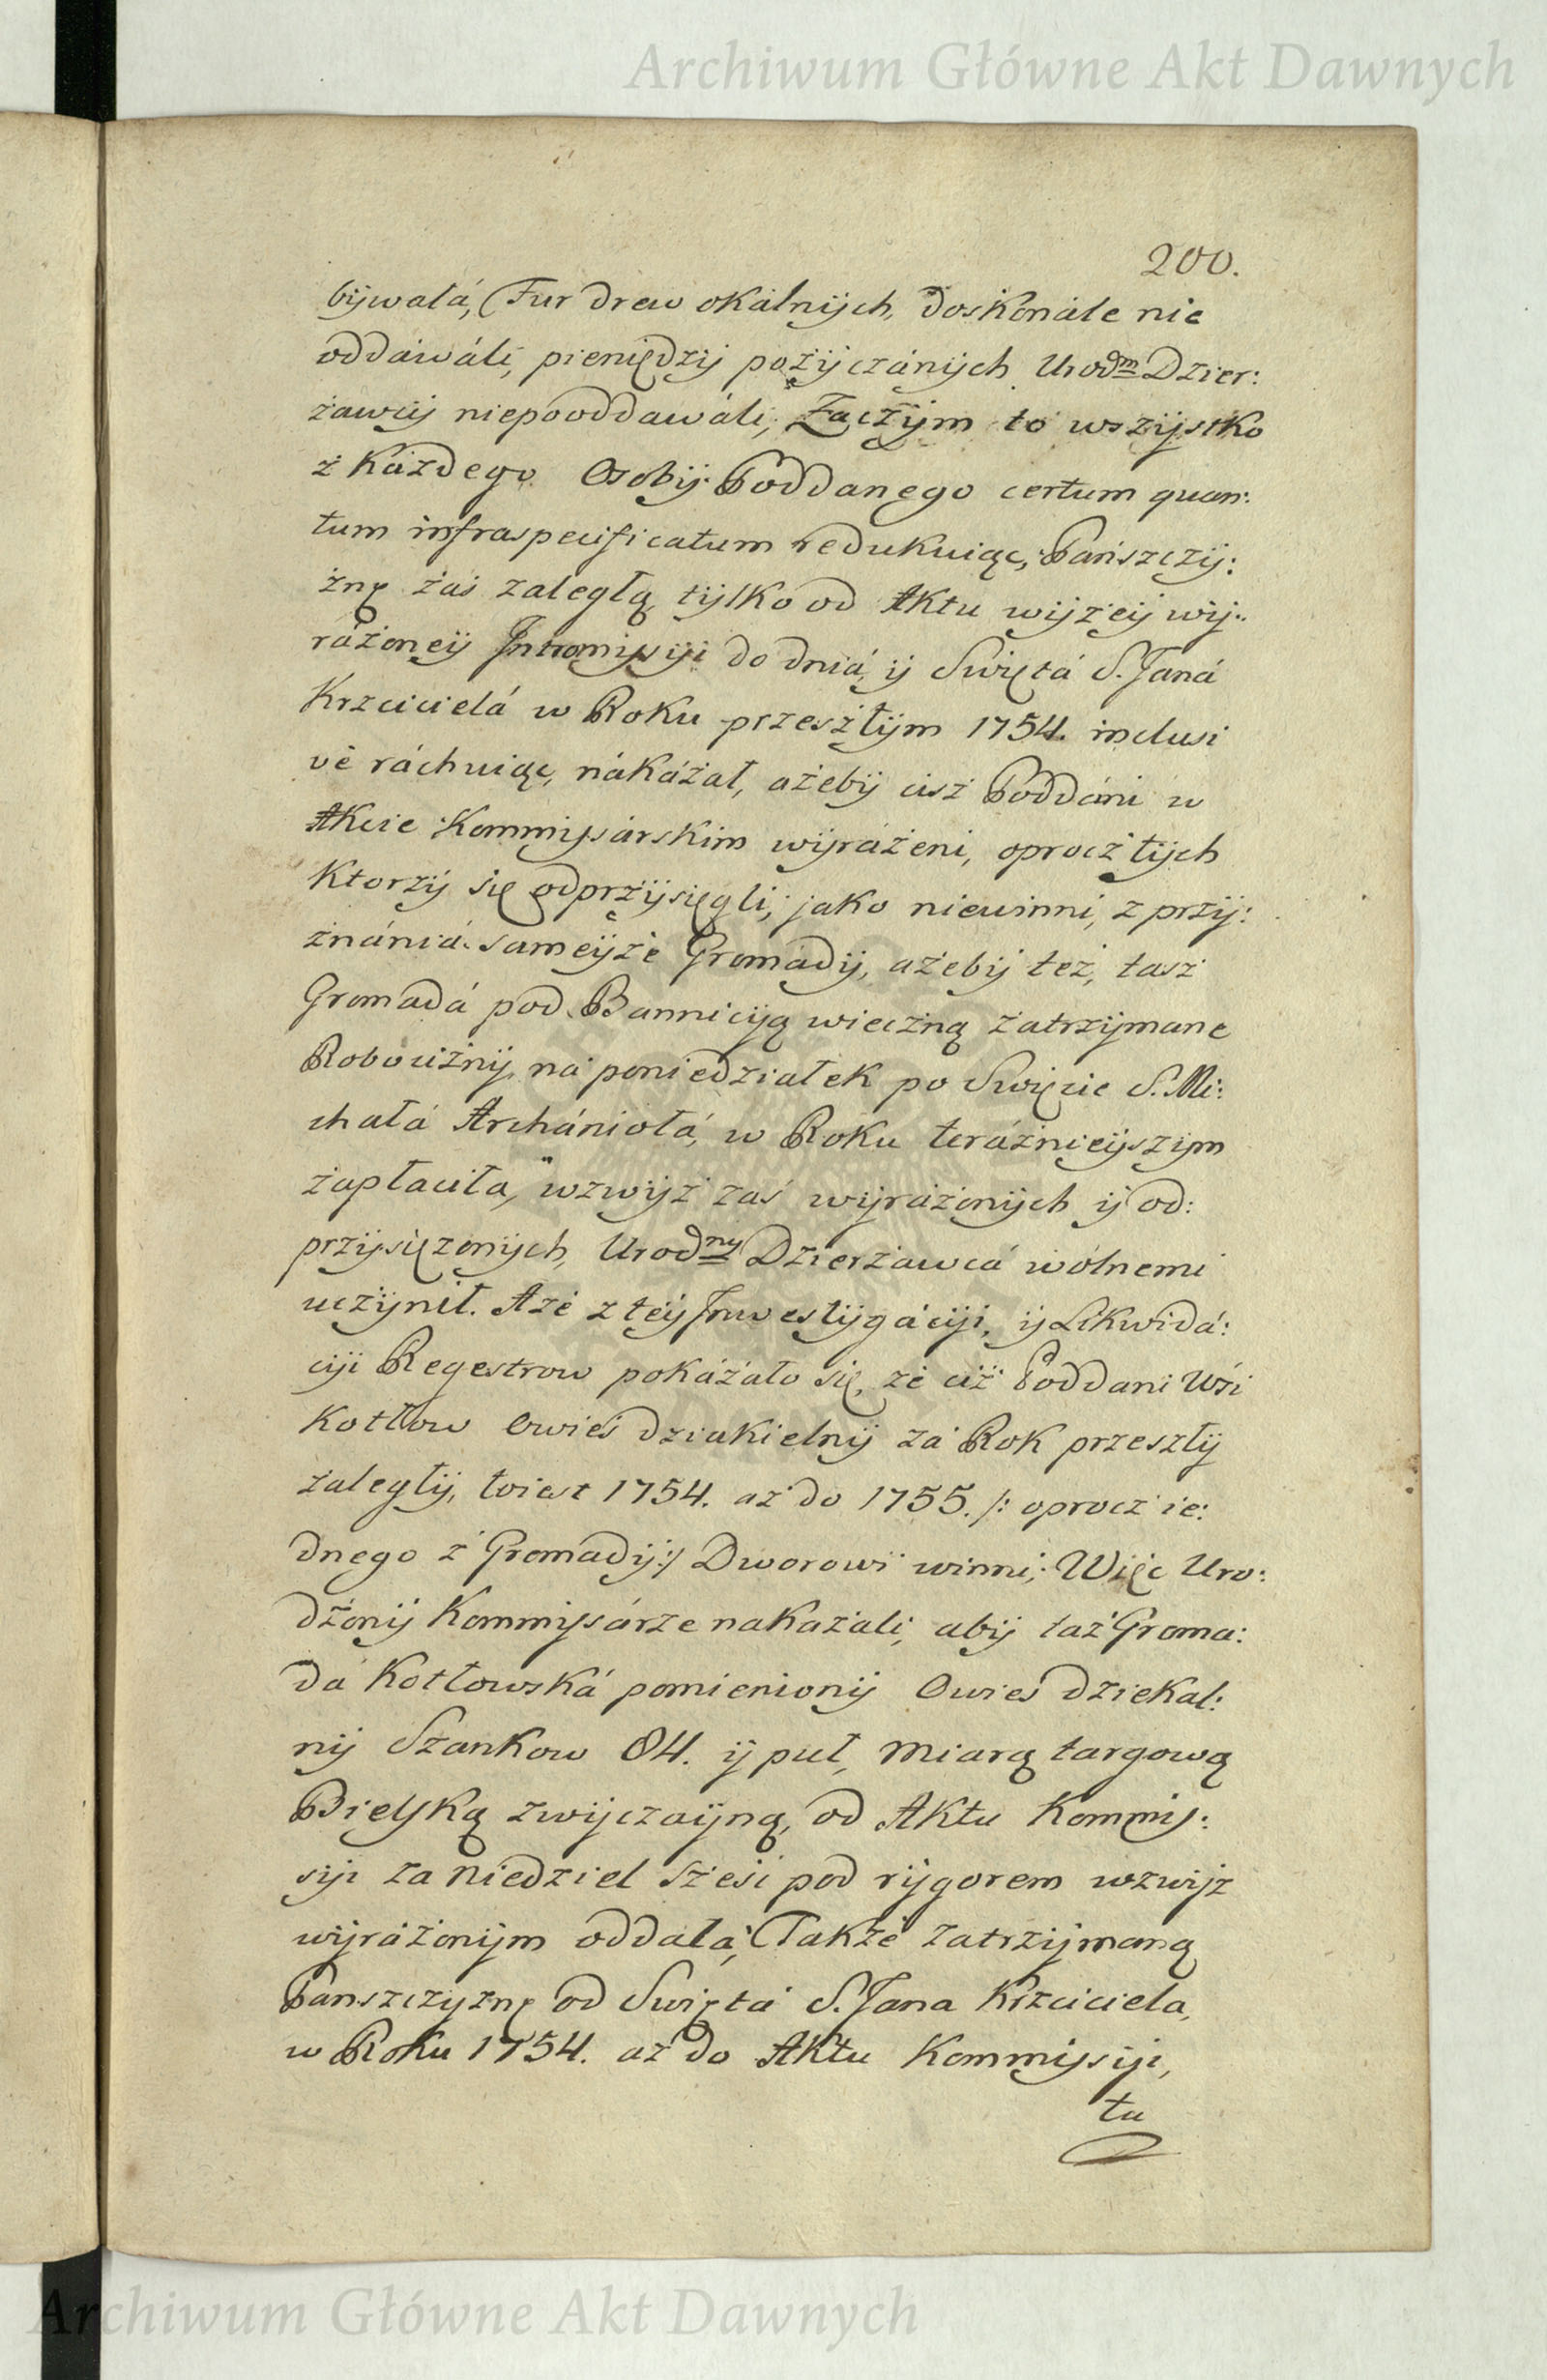 Archiwum Główne Akt Dawnych
200.
bijwałá, Fur drew okálnijch, doskonále nie
oddáwáli, pieniędzij pożijczánijch Urodm Dzier:
żawcij niepooddawáli, Zaczijm to wszijstko
z káżdego Osobij Poddanego certum quan:
tum infraspecificatum redukuiąc, Pańszczij:
znę zaś zaległą tijlko od Aktu wijżeij wij:
ráżoneij Intromissiji do dniá ij Swiętá S. Janá
Krzcicielá w Roku przeszłijm 1754. inclusi
vè ráchuiąc, nákázał, ażebij cisz Poddáni w
Akcie Kommissárskim wijráżeni, oprocz tijch
ktorzij się odprzijsięgli, jako niewinni, z przij:
znániá sameijże Gromádij, ażebij też, tasz
Gromadá pod Banniciją wieczną zatrzijmane
Robociznij ná poniedziałek po Swięcie S. Mi:
chałá Archániołá, w Roku teráznieijszijm
zapłaciła, wzwijż zaś wijráżonijch ij od:
przijsiężonijch, Urodnij Dzierżawcá wólnemi
uczijnił. Aże z teij Inwestijgáciji, ij Likwidá:
ciji Regestrow pokázáło się, że ciż Poddani Wsi
Kotłow Owies dziakielnij zá Rok przeszłij
zaległij, toiest 1754. aż do 1755. /: oprocz ie:
dnego z Gromadij:/ Dworowi winni; Więc Uro:
dzonij Kommissárze nakazali, abij taż Groma:
dá Kotłowská pomienionij Owies dziekal:
nij Szankow 84. ij puł, miarą targową
Bielską zwijczaijną, od Aktu Kommis:
siji za Niedziel sześć pod rijgorem wzwijż
wijráżonijm oddałá; Także zatrzijmaną
Panszczyznę od Swiętá S. Jana Krzciciela,
w Roku 1754. aż do Aktu Kommissiji,
tu
Archiwum Główne Akt Dawnych